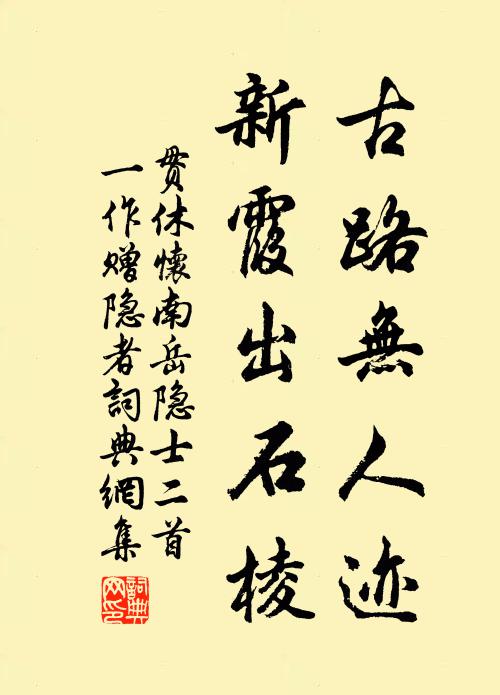 古路無人迹
新霞出石棱
贯休懷南岳隐士二首
一作赠隐者詞典網集
詞典
网印